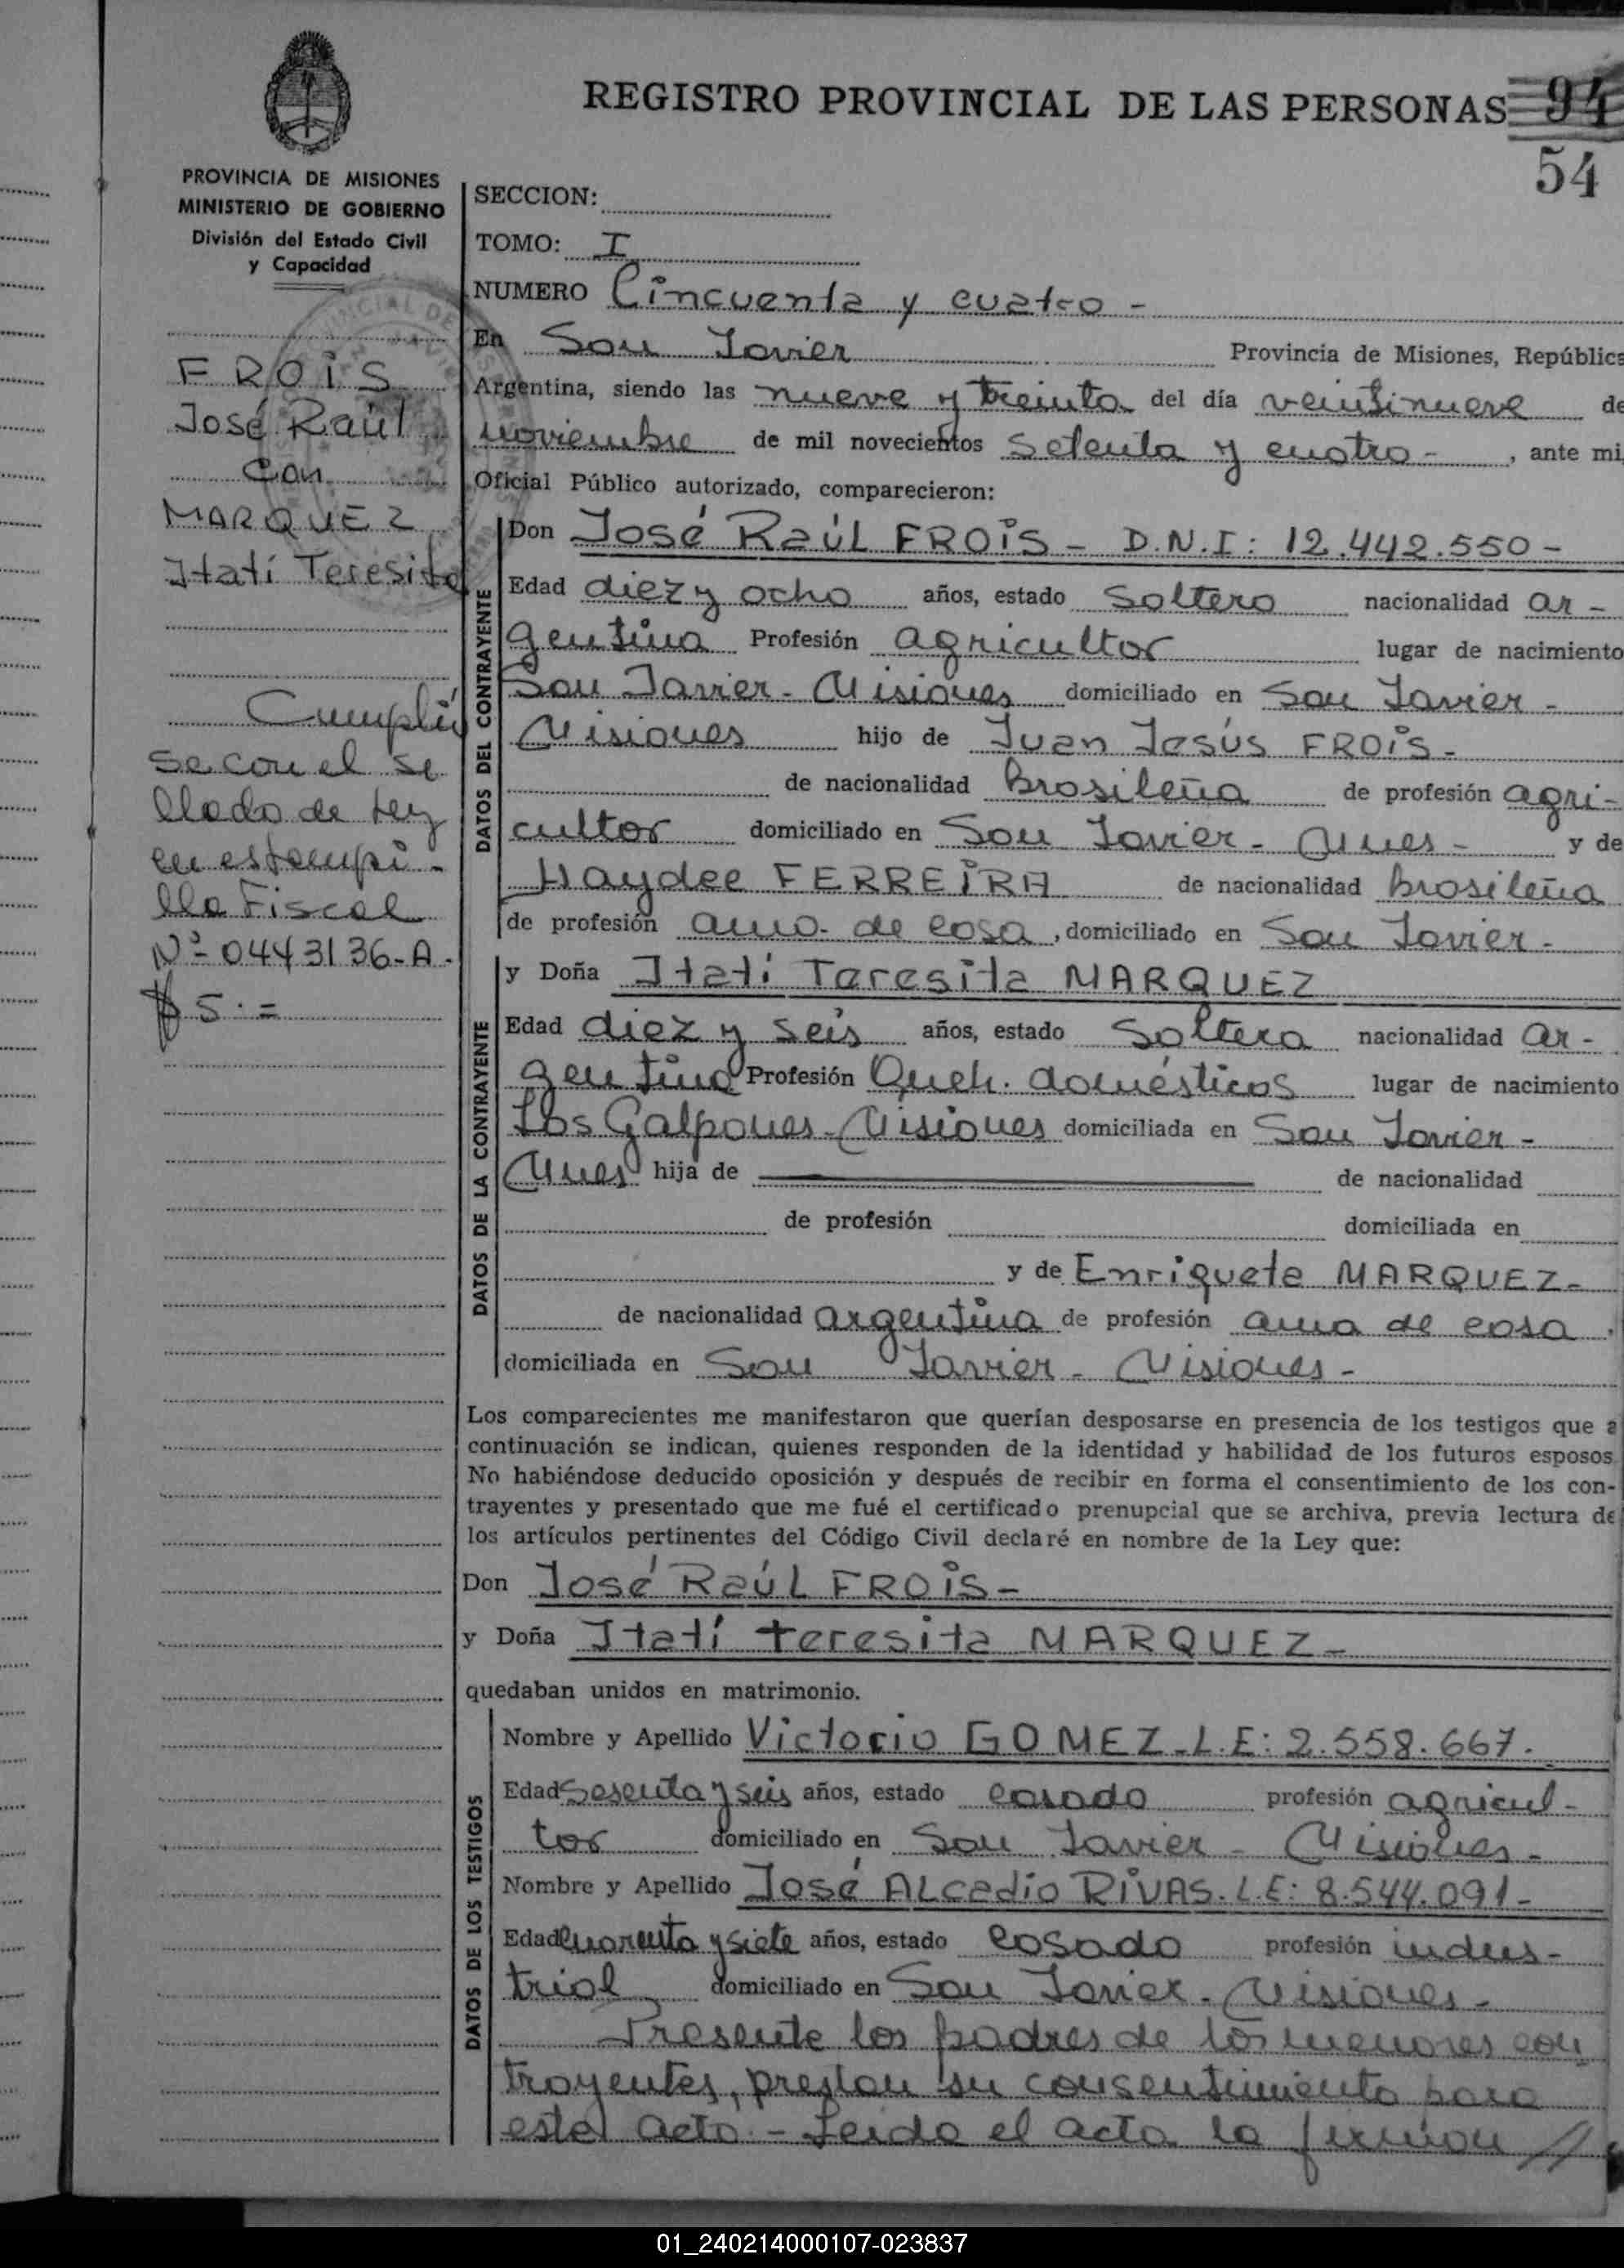 REGISTRO PROVINCIAL DE LAS PERSONAS 94
54
PROVINCIA DE MISIONES
MINISTERIO DE GOBIERNO
División del Estado Civil
y Capacidad
FROIS
José Raúl
Con
MARQUEZ
Itatí Teresita
Cumplió
se con el se
llado de Ley
en estampi-
lla Fiscal
Nº- 0443136-A.-
$ 5.=
SECCION:
TOMO: I
NUMERO Cincuenta y cuatro -
En San Javier Provincia de Misiones, República
Argentina, siendo las nueve y treinta del día veintinueve de
noviembre de mil novecientos setenta y cuatro - , ante mi,
Oficial Público autorizado, comparecieron:
DATOS DEL CONTRAYENTE
Don José Raúl FROIS - D.N.I: 12.442.550 -
Edad diez y ocho años, estado Soltero nacionalidad ar -
gentina Profesión agricultor lugar de nacimiento
San Javier - Misiones domiciliado en San Javier -
Misiones hijo de Juan Jesús FROIS -
de nacionalidad Brasileña de profesión agri-
cultor domiciliado en San Javier - Mnes - y de
Haydee FERREIRA de nacionalidad brasileña
de profesión ama de casa , domiciliado en San Javier -
DATOS DE LA CONTRAYENTE
y Doña Itatí Teresita MARQUEZ
Edad diez y seis años, estado Soltera nacionalidad ar -
gentina Profesión Queh. domésticos lugar de nacimiento
Los Galpones - Misiones domiciliada en San Javier -
Mnes hija de de nacionalidad
de profesión domiciliada en
y de Enriqueta MARQUEZ -
de nacionalidad argentina de profesión ama de casa .
domiciliada en San Javier - Misiones -
Los comparecientes me manifestaron que querían desposarse en presencia de los testigos que a
continuación se indican, quienes responden de la identidad y habilidad de los futuros esposos
No habiéndose deducido oposición y después de recibir en forma el consentimiento de los con-
trayentes y presentado que me fué el certificado prenupcial que se archiva, previa lectura de
los artículos pertinentes del Código Civil declaré en nombre de la Ley que:
Don José Raúl FROIS -
y Doña Itatí teresita MARQUEZ -
quedaban unidos en matrimonio.
DATOS DE LOS TESTIGOS
Nombre y Apellido Victorio GOMEZ - L.E: 2.558.667.
Edad Sesenta y seis años, estado casado profesión agricul -
tor domiciliado en San Javier - Misiones -
Nombre y Apellido José Alcadio RIVAS. L.E: 8.544.091 -
Edad cuarenta y siete años, estado casado profesión indus -
trial domiciliado en San Javier - Misiones -
Presente los padres de los menores con
trayentes, prestan su consentimiento para
este acto. - Leida el acta la firman //
01_240214000107-023837